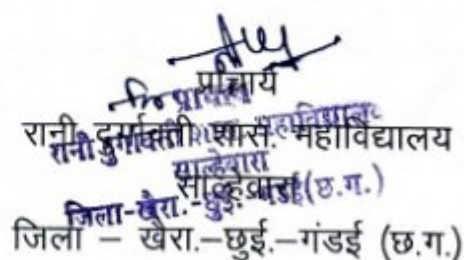 प्राचार्य
रानी दुर्गावती शास. महाविद्यालय
साल्हेवारा
जिला – खैरा.–छुई.–गंडई (छ.ग.)
प्राचार्य
रानी दुर्गावती शास. महाविद्यालय
साल्हेवारा
जिला-खैरा.-छुई.-गंडई (छ.ग.)